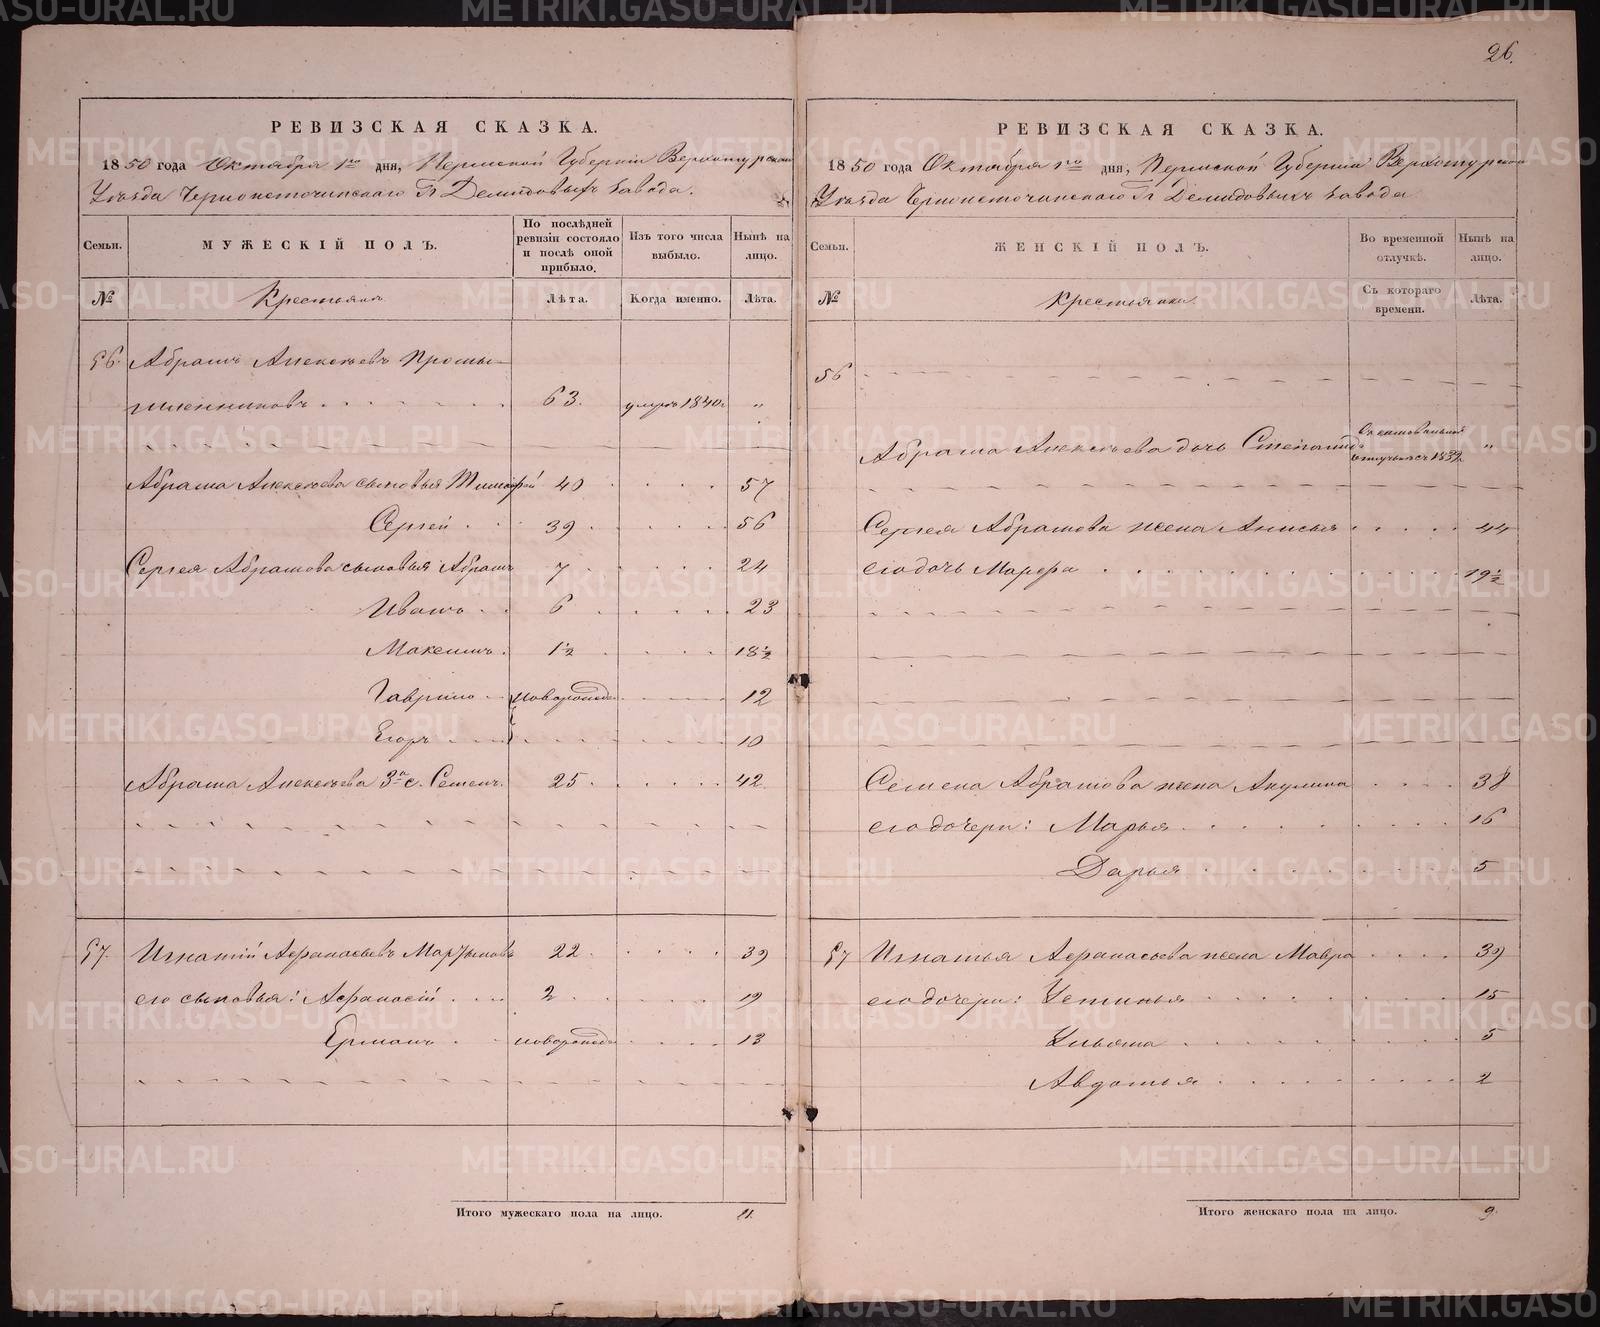 26.
РЕВИЗСКАЯ СКАЗКА.
1850 года Октября 1го дня, Пермской Губерніи Верхотурскаго
Уѣзда Черноисточинскаго Гг Демидовыхъ завода.
Семьи.
МУЖЕСКІЙ ПОЛЪ.
По послѣдней ревизіи состояло и послѣ оной прибыло.
Изъ того числа выбыло.
Нынѣ на лицо.
№
Крестьянъ
Лѣта.
Когда именно.
Лѣта.
56. Абрамъ Алексѣевъ Промы-
шленниковъ 63. умеръ 1840. "
Абрама Алексѣева сыновья Тимофей 40 57
Сергей 39 56
Сергея Абрамова сыновья Абрамъ 7 24
Иванъ 6 23
Максимъ. 1½ 18½
Гаврило новорожд. 12
Егоръ 10
Абрама Алексѣева 3й с. Семенъ. 25 42
57. Игнатій Афанасьевъ Мартьяновъ 22 39
его сыновья: Афанасій 2 19
Ерманъ новорожд. 13
Итого мужескаго пола на лицо. 11.
РЕВИЗСКАЯ СКАЗКА.
1850 года Октября 1го дня, Пермской Губерніи Верхотурской
Уѣзда Черноисточинскаго Гг Демидовыхъ завода
Семьи.
ЖЕНСКІЙ ПОЛЪ.
Во временной отлучкѣ.
Нынѣ на лицо.
№
Крестьянки.
Съ котораго времени.
Лѣта.
56
Абрама Алексѣева дочь Степанида отлучкѣ съ 1832 "
Сергея Абрамова жена Анисья 44
его дочь Марфа 19½
Семена Абрамова жена Акулина 38
его дочери: Марья 16
Дарья 5
57 Игнатья Афанасьева жена Мавра 39
его дочери: Устинья 15
Ульяна 5
Авдотья 2
Итого женскаго пола на лицо. 9.
METRIKI.GASO-URAL.RU